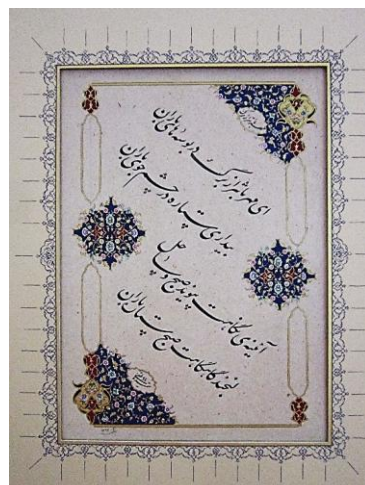 ای مهربانتر از برگ در بوسه های باران
بیداری ستاره در چشم جویباران
آئینه ی نگاهت پیوند صبح و ساحل
لبخند گاهگاهت صبح ستاره باران